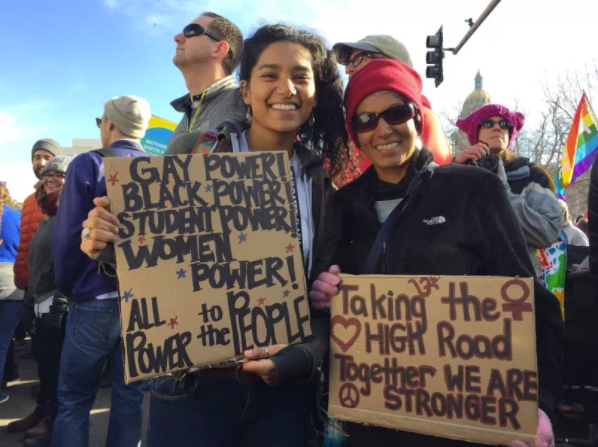 GAY POWER!
BLACK POWER!
STUDENT POWER!
WOMEN
POWER!
ALL to
POWER the PEOPLE
Taking the
HIGH Road
Together WE ARE
STRONGER
THE NORTH FACE
MOTHER
EARTH